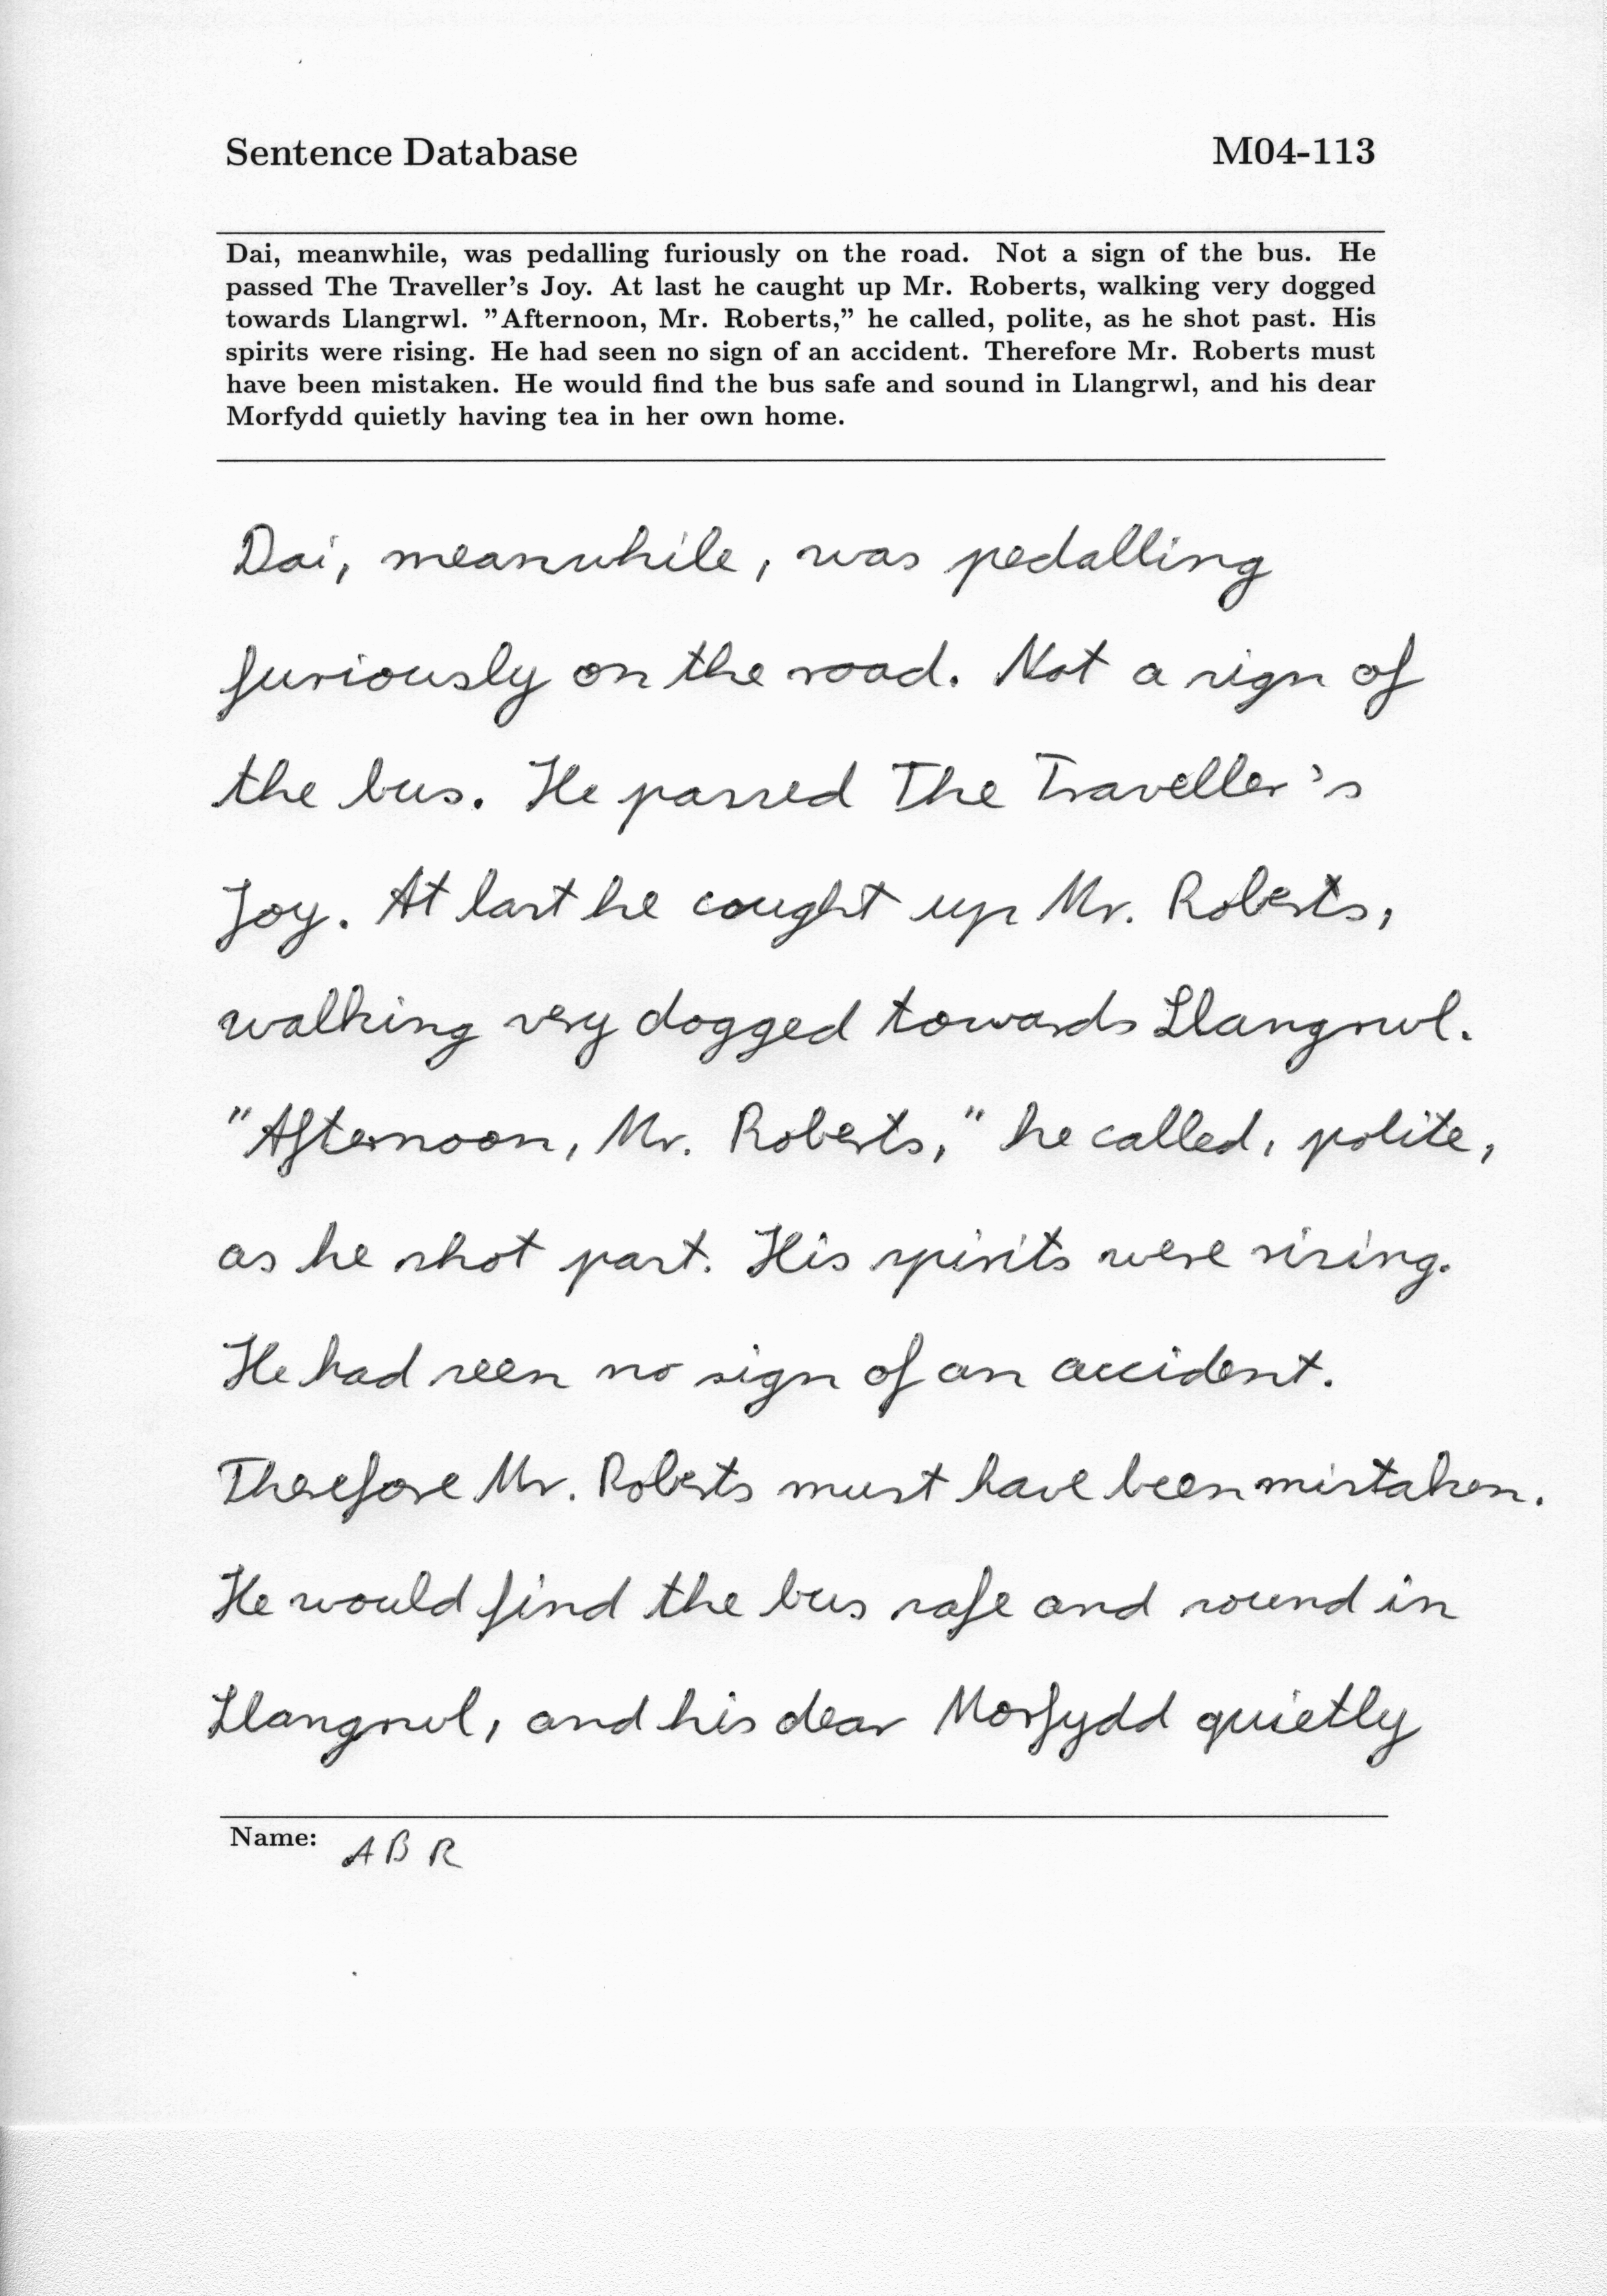 Sentence Database M04-113
Dai, meanwhile, was pedalling furiously on the road. Not a sign of the bus. He
passed The Traveller's Joy. At last he caught up Mr. Roberts, walking very dogged
towards Llangrwl. "Afternoon, Mr. Roberts," he called, polite, as he shot past. His
spirits were rising. He had seen no sign of an accident. Therefore Mr. Roberts must
have been mistaken. He would find the bus safe and sound in Llangrwl, and his dear
Morfydd quietly having tea in her own home.
Dai, meanwhile, was pedalling
furiously on the road. Not a sign of
the bus. He passed The Traveller's
Joy. At last he caught up Mr. Roberts,
walking very dogged towards Llangrwl.
"Afternoon, Mr. Roberts," he called, polite,
as he shot past. His spirits were rising.
He had seen no sign of an accident.
Therefore Mr. Roberts must have been mistaken.
He would find the bus safe and sound in
Llangrwl, and his dear Morfydd quietly
Name: ABR